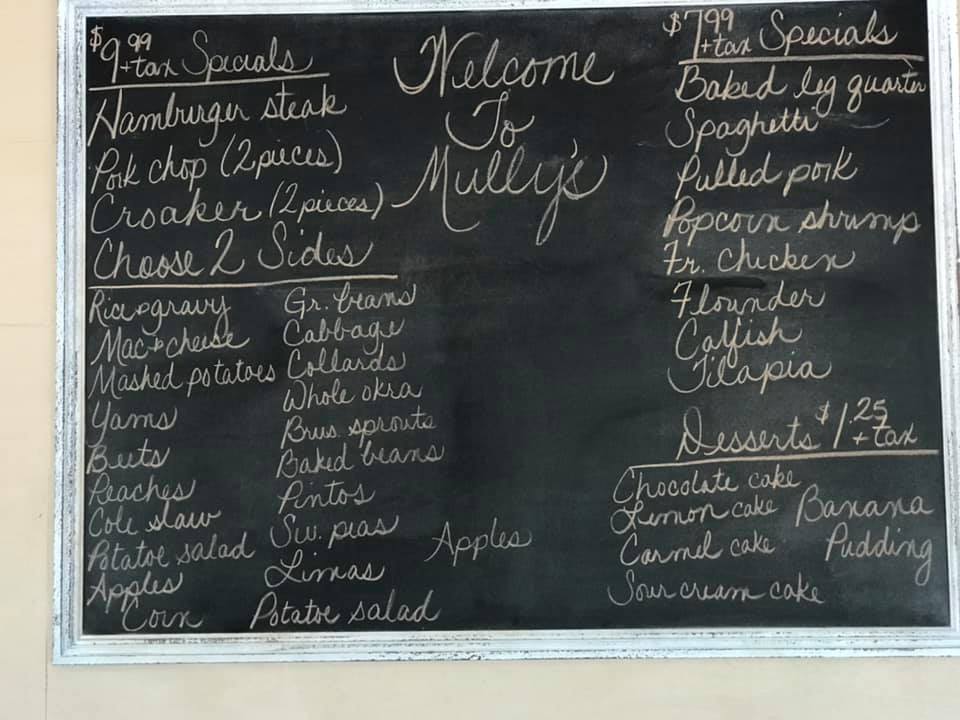 $9.99 +tax Specials
Hamburger steak
Pork chop (2 pieces)
Croaker (2 pieces)
Choose 2 Sides
Rice & gravy
Mac & cheese
Mashed potatoes
Yams
Beets
Peaches
Cole slaw
Potatoe salad
Apples
Corn
Gr. beans
Cabbage
Collards
Whole okra
Brus. sprouts
Baked beans
Pintos
Sw. peas
Limas
Potatoe salad
Apples
Welcome
To
Mully's
$7.99 +tax Specials
Baked leg quarter
Spaghetti
Pulled pork
Popcorn shrimp
Fr. chicken
Flounder
Catfish
Tilapia
Desserts $1.25 + tax
Chocolate cake
Lemon cake
Carmel cake
Sour cream cake
Banana
Pudding